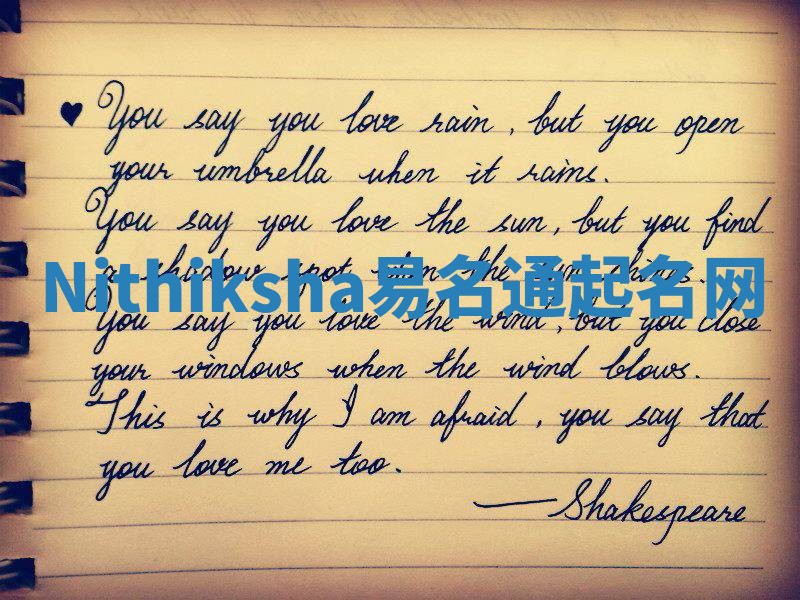 ♥ You say you love rain, but you open
your umbrella when it rains.
You say you love the sun, but you find
a shadow spot when the sun shines.
Nithiksha易名通起名网
You say you love the wind, but you close
your windows when the wind blows.
This is why I am afraid, you say that
you love me too.
—Shakespeare